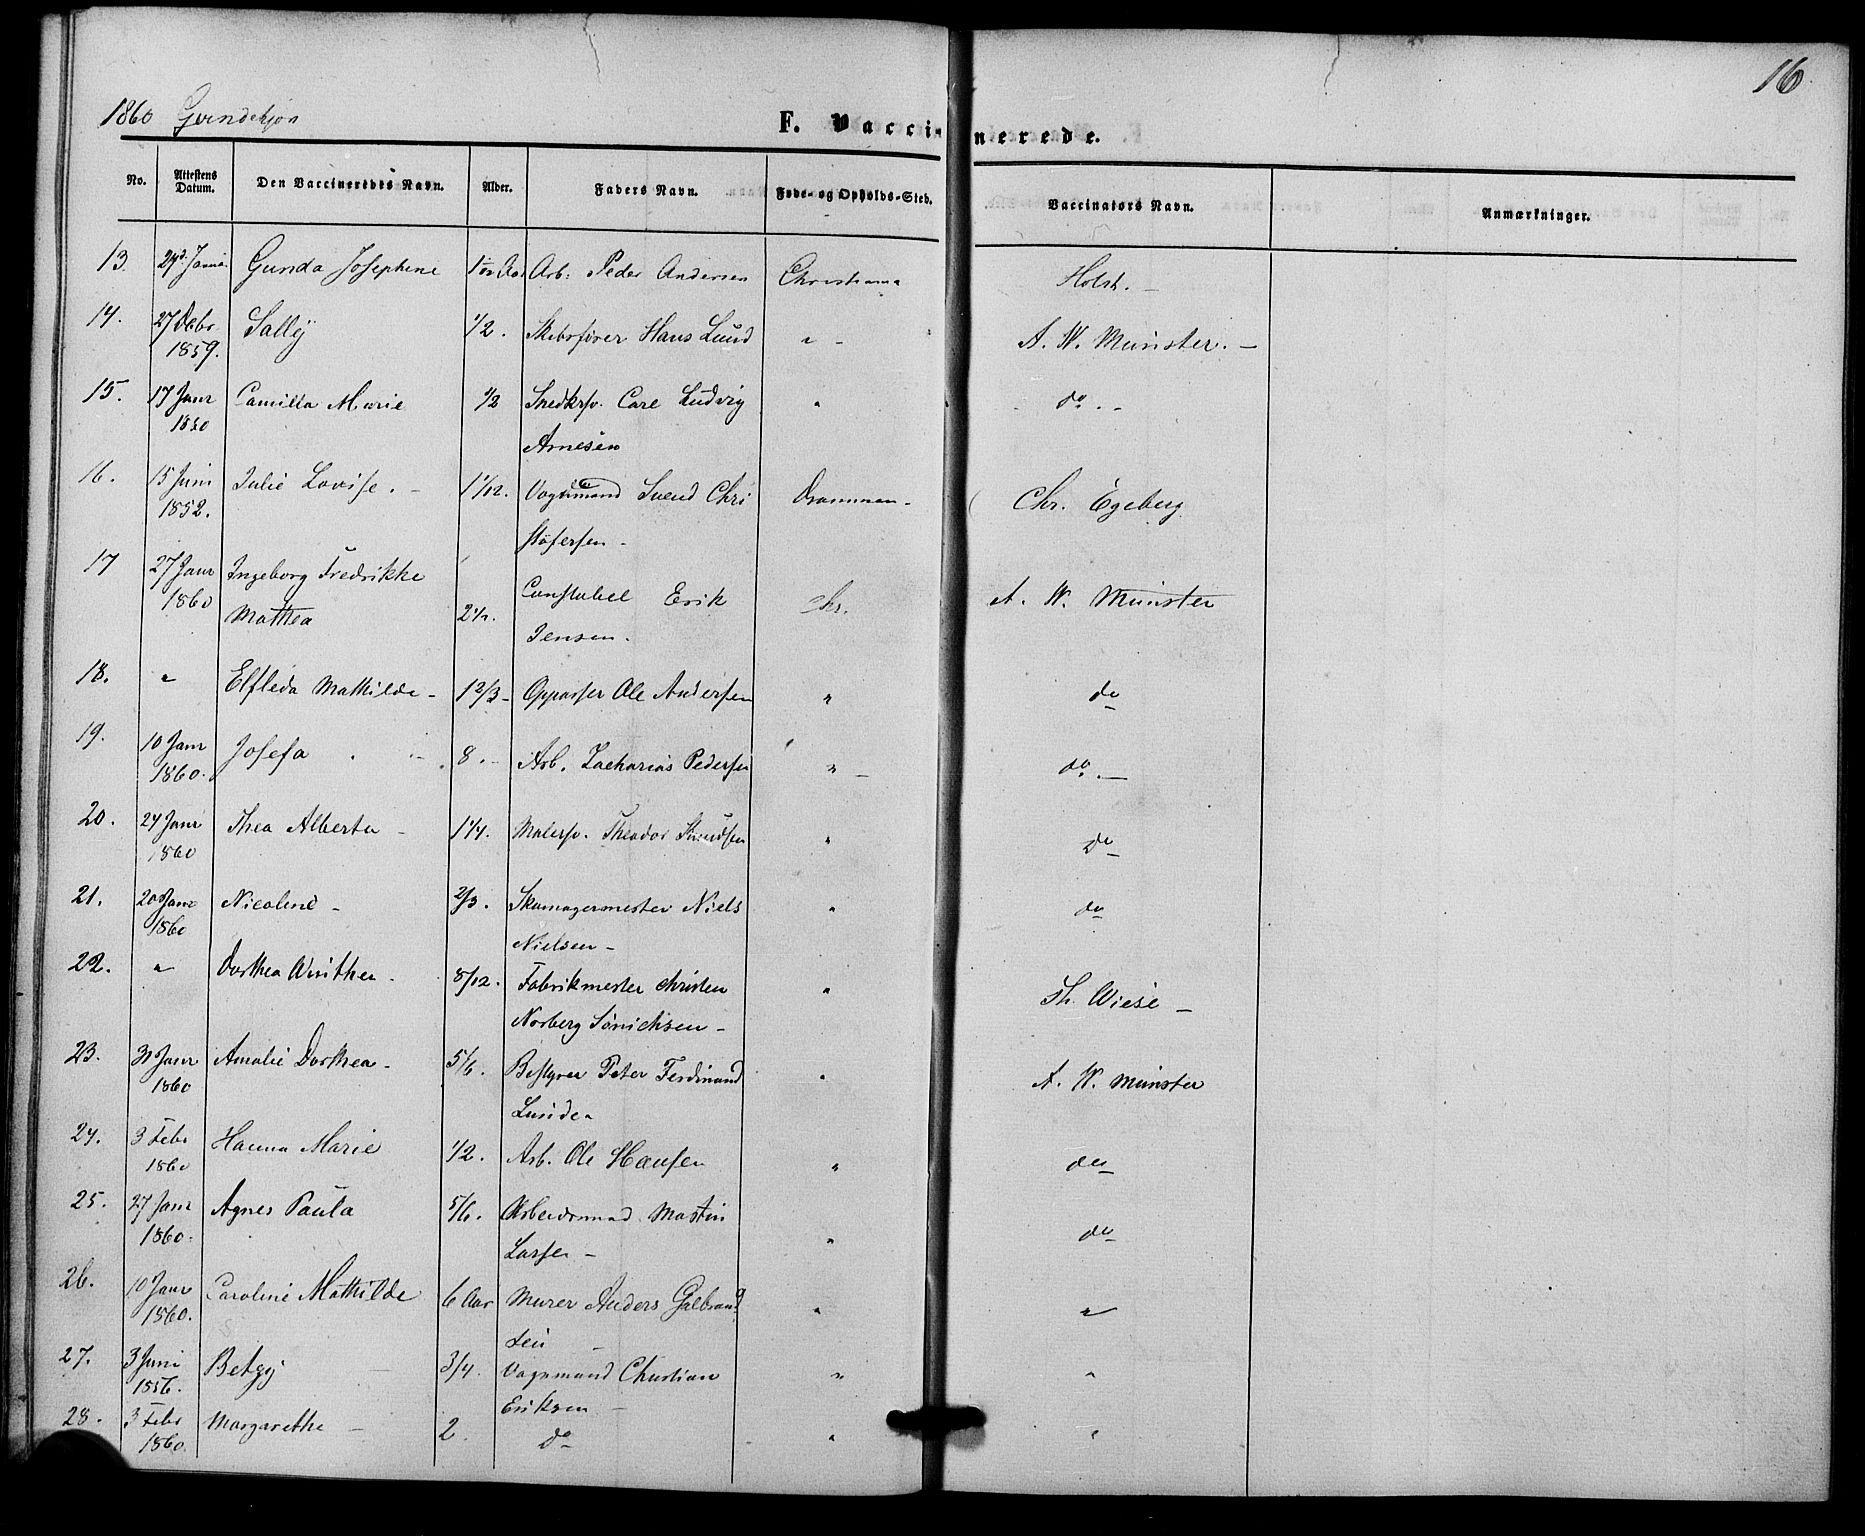 16
1860 Qvindekjøn
F. Vaccinerede.
No. Attestens Datum. Den Vaccineredes Navn. Alder. Faders Navn. Føde- og Opholds-Sted. Vaccinators Navn. Anmærkninger.
13. Gunda Josephine Arb: Peder Andersen Christiania Holst. -
14. 27 Debr Sally 1/2. Skibsfører Hans Lund " - A. W. Münster. -
1859.
15. 17 Janr Camilla Marie 1/2 Snedkrsv. Carl Ludvig " do. -
1860 Arnesen
16. 15 Juni Julie Lovise. - 1 1/12. Vognmand Svend Chri Drammen - Chr. Egeberg
1852. stofersen -
17 27 Janr Ingeborg Fredrikke
1860 Mathea 2 1/2. Constabel Erik Chr. A. W. Münster
Jensen.
18. " Elfleda Mathilde - 1 2/3 - Oppasser Ole Andersen " do
19. 10 Janr Josefa 8. - Arb. Zacharias Pedersen " - do. -
1860.
20. 24 Janr Thea Alberta - 1 1/4. Malersv. Theodor " do
1860
21. 20 Janr Nicoline - 2/3. Skomagermester Niels " do
1860 Nielsen -
22. " Dorthea - 8/12. Fabrikmester Christen " Th. Wiese -
Norberg Sønichsen -
23. 31 Janr Amalie Dorthea - 5/6. Bestyrer Peter Ferdinand " A. W. Münster
1860 Lunde.
24. 3 Febr Hanna Marie 1/2. Arb. Ole Hansen " do
1860
25. 27 Janr Agnes Paula 5/6. Arbeidsmand Martin " do
1860. Larsen -
26. 10 Janr Caroline Mathilde 6 Aar Murer Anders Gulbrand " "
1860. sen -
27. 3 Juni Betzy - 3/4. Vognmand Christian " "
1856. Eriksen -
28. 3 Febr Margarethe - 2. do " "
1860.